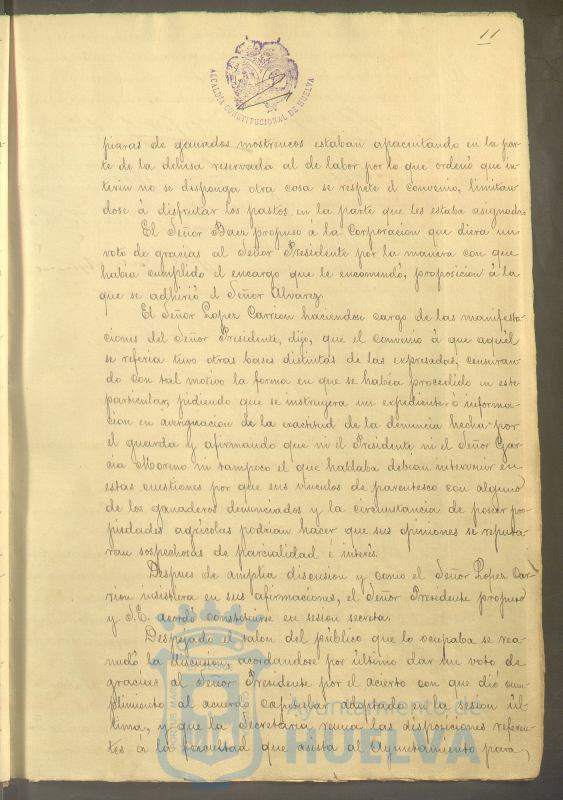 11
ALCALDIA CONSTITUCIONAL DE HUELVA
piaras de ganados mostrencos estaban apacentando en la par-
te de la dehesa reservada al de labor por lo que ordenó que in-
terin no se disponga otra cosa se respete el convenio, limitan-
dose á disfrutar los pastos en la parte que les estaba asignada
El Señor Baez propuso á la Corporacion que diera un
voto de gracias al Señor Presidente por la manera con que
habia cumplido el encargo que le encomendó, proposicion á la
que se adhirió el Señor Alvarez.
El Señor Lopez Carrion haciendose cargo de las manifesta-
ciones del Señor Presidente, dijo, que el convenio á que aquél
se referia tuvo otras bases distintas de las expresadas, censuran-
do con tal motivo la forma en que se habia procedido en este
particular, pidiendo que se instruyera un expediente ó informa-
cion en averiguacion de la exactitud de la denuncia hecha por
el guarda y afirmando que ni el Presidente ni el Señor Gar-
cia Moreno ni tampoco el que hablaba debian intervenir en
estas cuestiones por que sus vinculos de parentesco con alguno
de los ganaderos denunciados y la circunstancia de poseer pro-
piedades agrícolas podrian hacer que sus opiniones se reputa-
ran sospechosas de parcialidad é interés.
Despues de amplia discusion y como el Señor Lopez Ca-
rrion insistiera en sus afirmaciones, el Señor Presidente propuso
y S.E. acordó constituirse en sesion secreta.
Despejado el salon del público que lo ocupaba se rea-
nudó la discusion, acordandose por último dar un voto de
gracias al Señor Presidente por el acierto con que dió cum-
plimiento al acuerdo capitular adoptado en la sesion úl-
tima, y que la Secretaria reuna las disposiciones referen-
tes a la facultad que asista al Ayuntamiento para
Ayuntamiento de
HUELVA